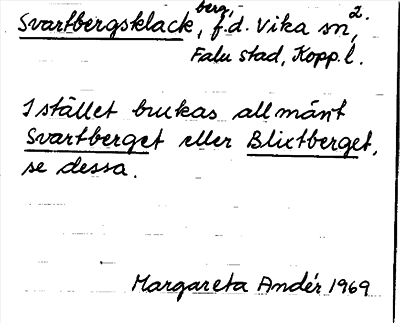 Svartbergsklack, berg, f.d. Vika sn, 2.
Falu stad, Kopp.l.
I stället brukas allmänt
Svartberget eller Blixtberget,
se dessa.
Margareta Andér 1969